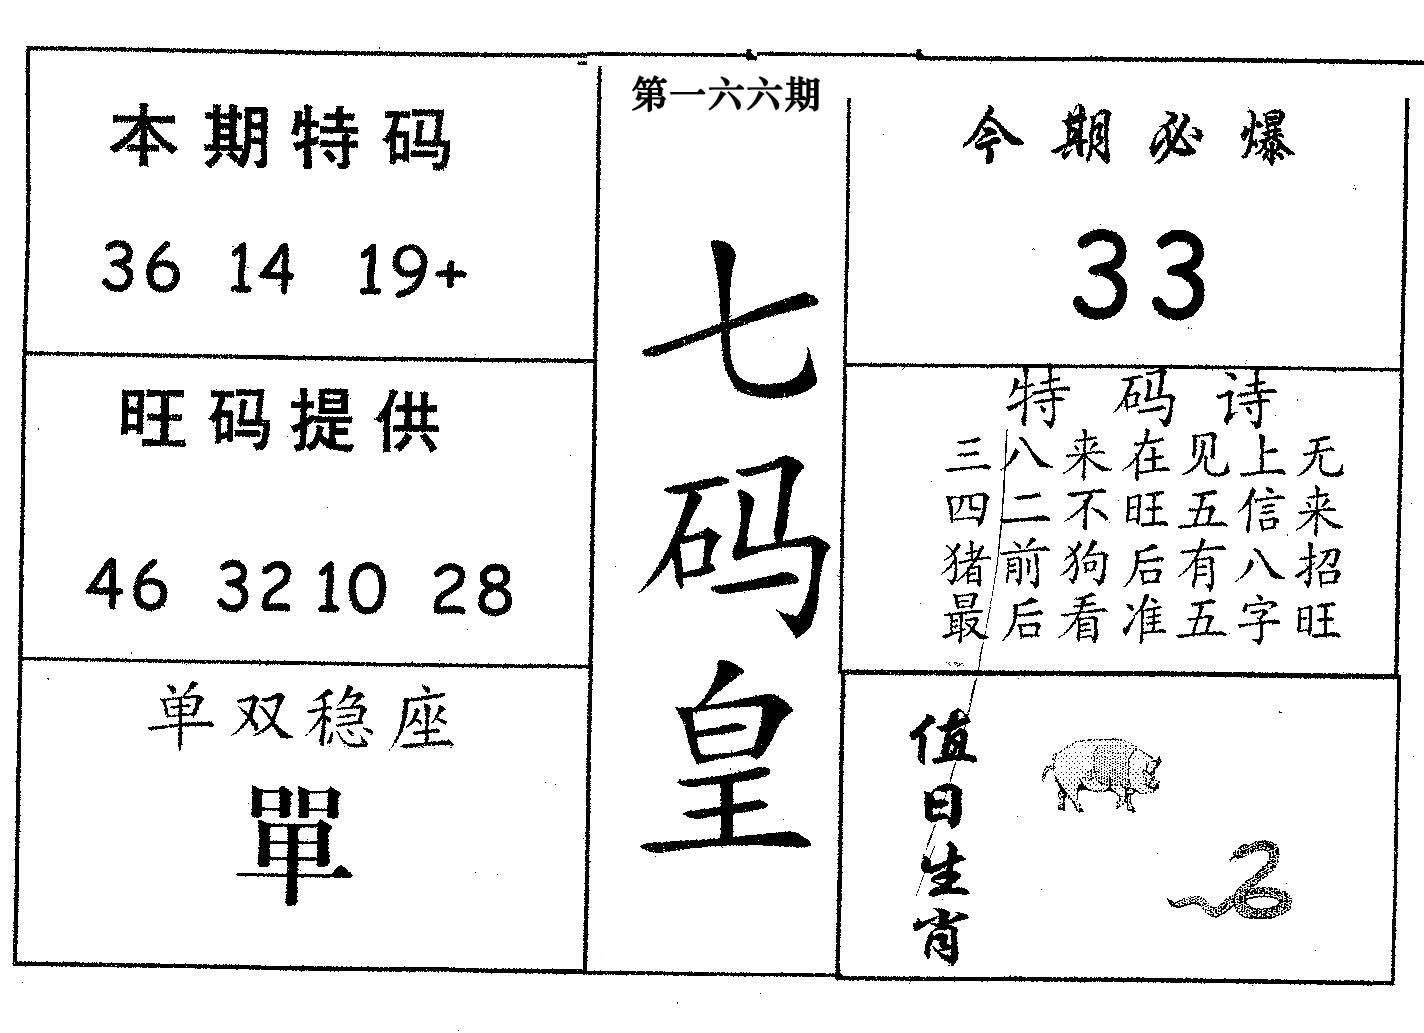 本期特码
36 14 19+
旺码提供
46 32 10 28
单双稳座
單
第一六六期
七码皇
今期必爆
33
特码诗
三八来在见上无
四二不旺五信来
猪前狗后有八招
最后看准五字旺
值日生肖